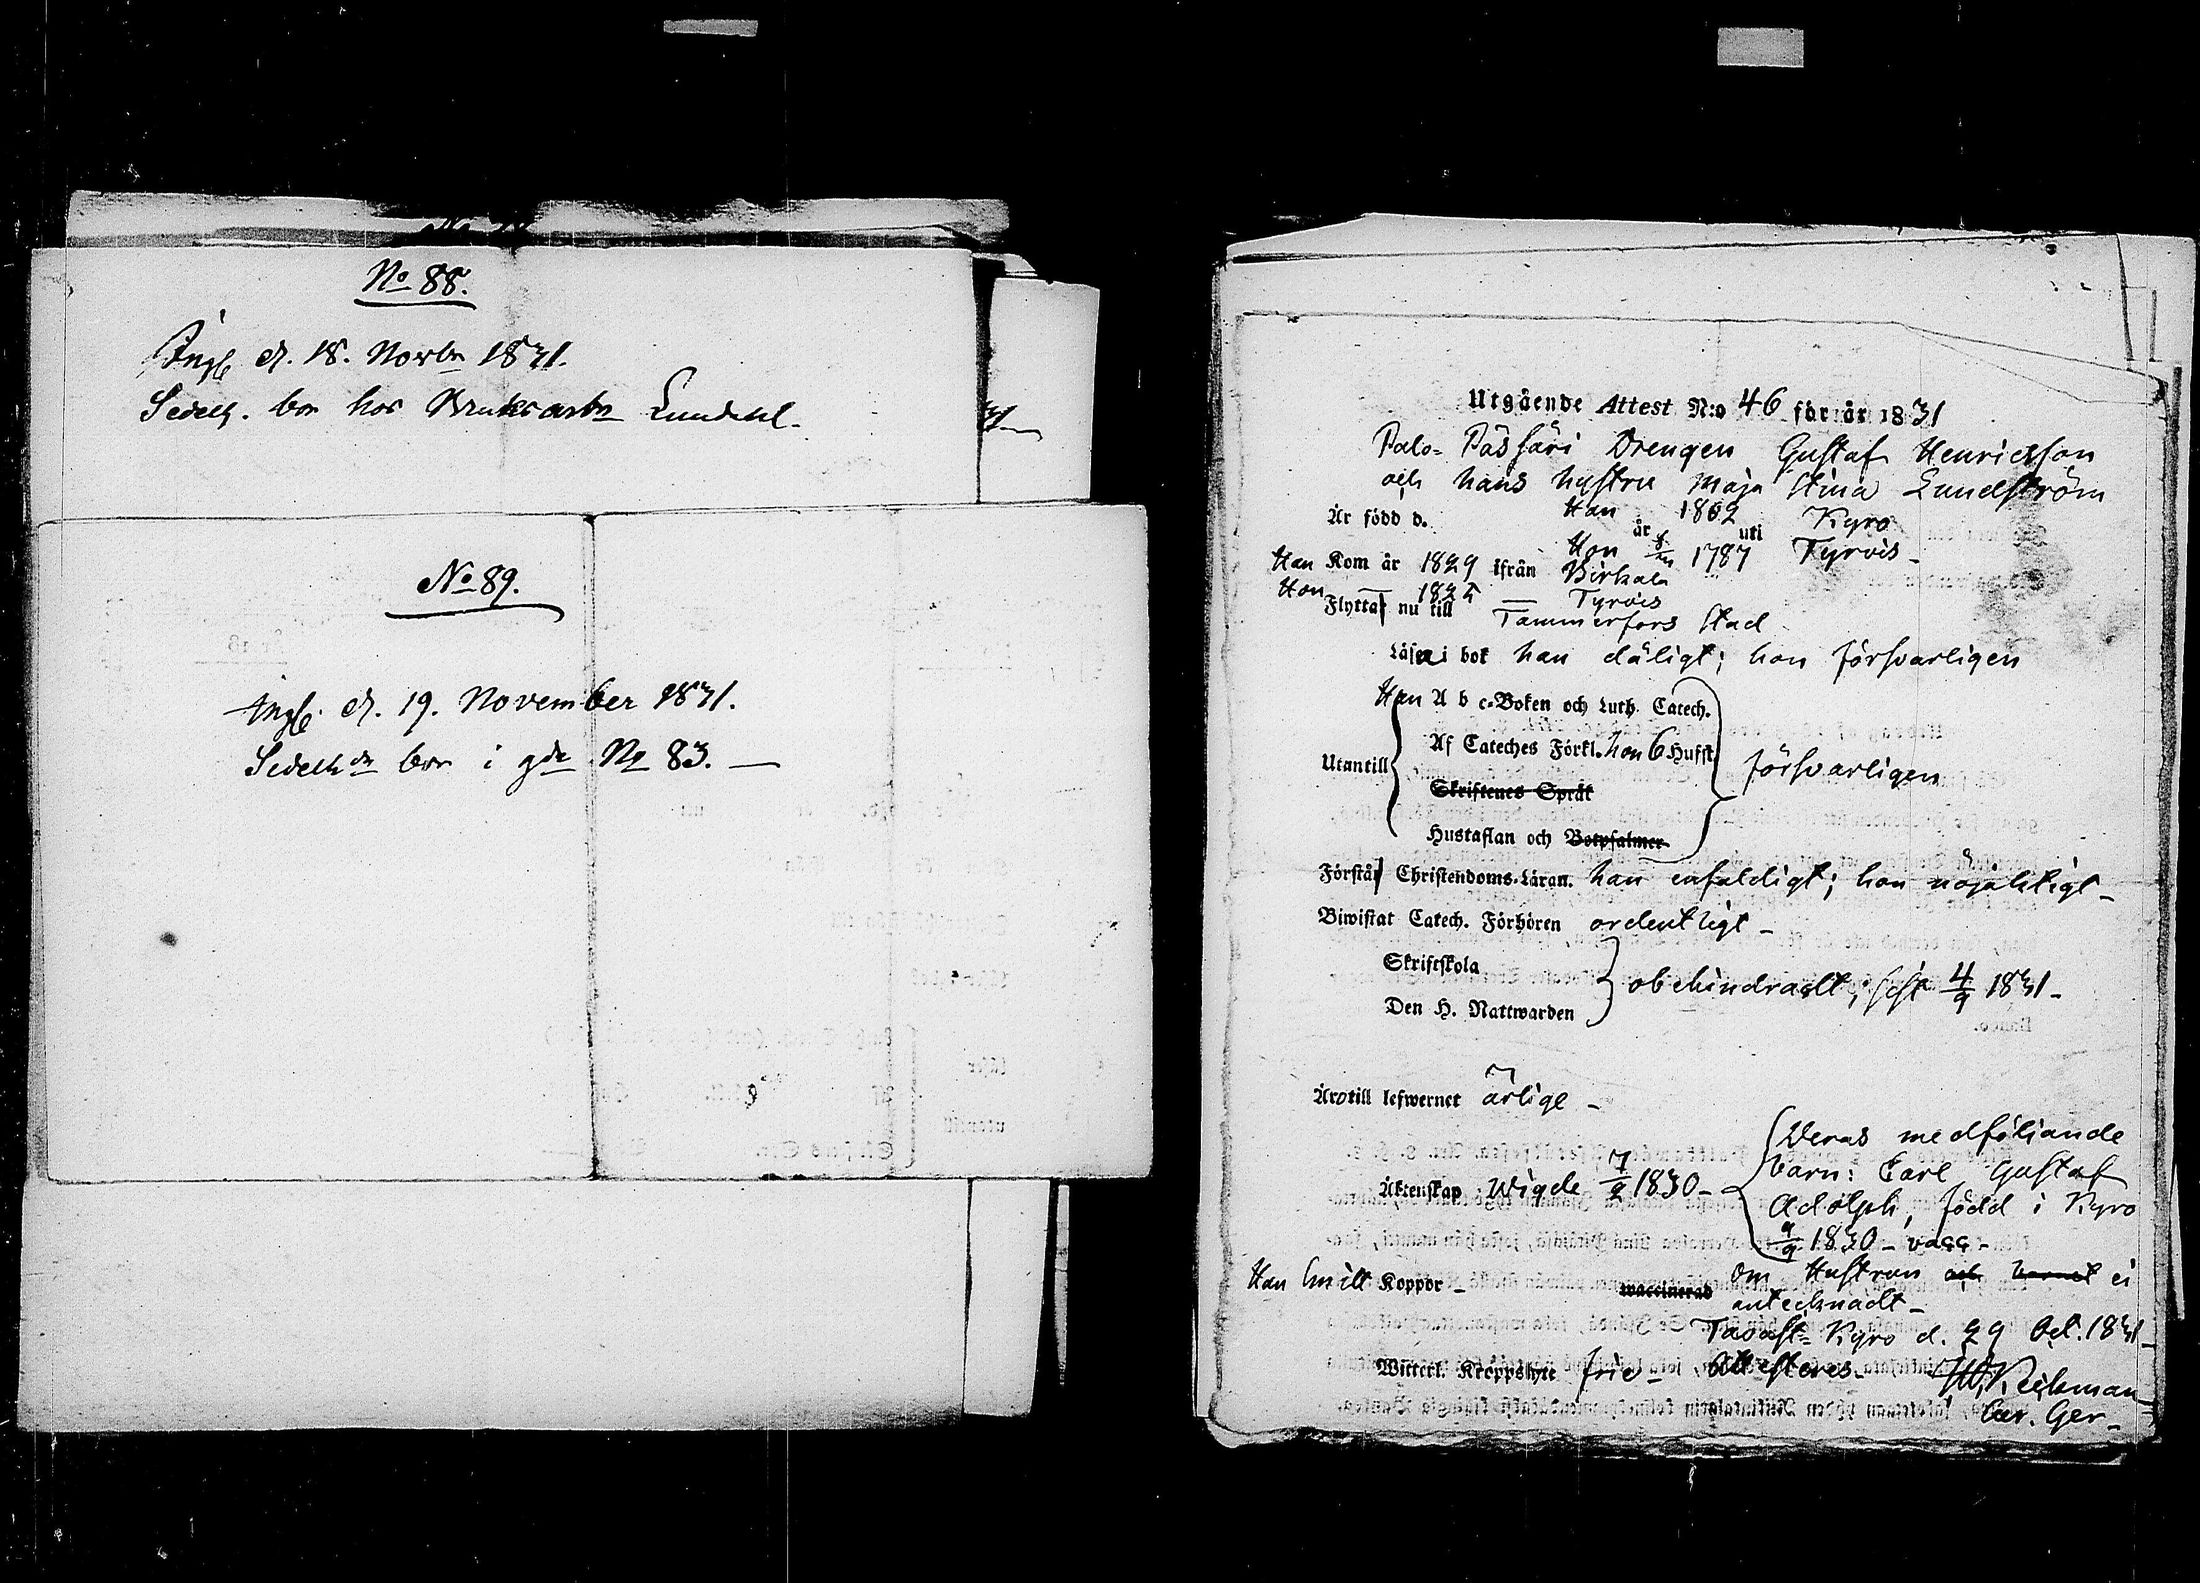 No 88.
Ingl. d. 18. Novbr 1831.
Sedelh. bor hos Bruksarbn Lundahl.
No 89.
Ingl. d. 19. November 1831.
Sedelhdn bor i gdn No 83. —
Utgående Attest N:o 46 för år 1831
Palo- Passari Drengen Gustaf Henricsson
och hans hustru Maja Stina Lundström
Är född d. Han år 1802 uti Kyro
Hon 1787 Tyrvis —
Han Kom år 1829 ifrån Birkala
Hon — 1825 — Tyrvis
Flytta nu till Tammerfors Stad
Läsa i bok han dåligt; hon försvarligen
Han A b c-Boken och Luth. Catech.
Utantill Af Cateches Förkl. hon 6 Hufst försvarligen
Skriftenes Språk
Hustaflan och Botpsalmer
Förstå Christendoms-Läran. han enfaldigt; hon nöjaktigt —
Biwistat Catech. Förhören ordentligt —
Skriftskola
obehindradt, sist 4/9 1831 —
Den H. Nattwarden
Äro till lefwernet ärlige —
Deras medföljande
barn: Carl Gustaf
Äktenskap Wigde 7/2 1830 —
Adolph, född i Kyro
9/9 1830 — vacc —
Han haft Koppor — waccinerad om Hustrun och barnet ei
antecknadt —
Tavast- Kyro d. 29 Oct. 1831
Witterl. Kroppslyte frie — Attesteres —